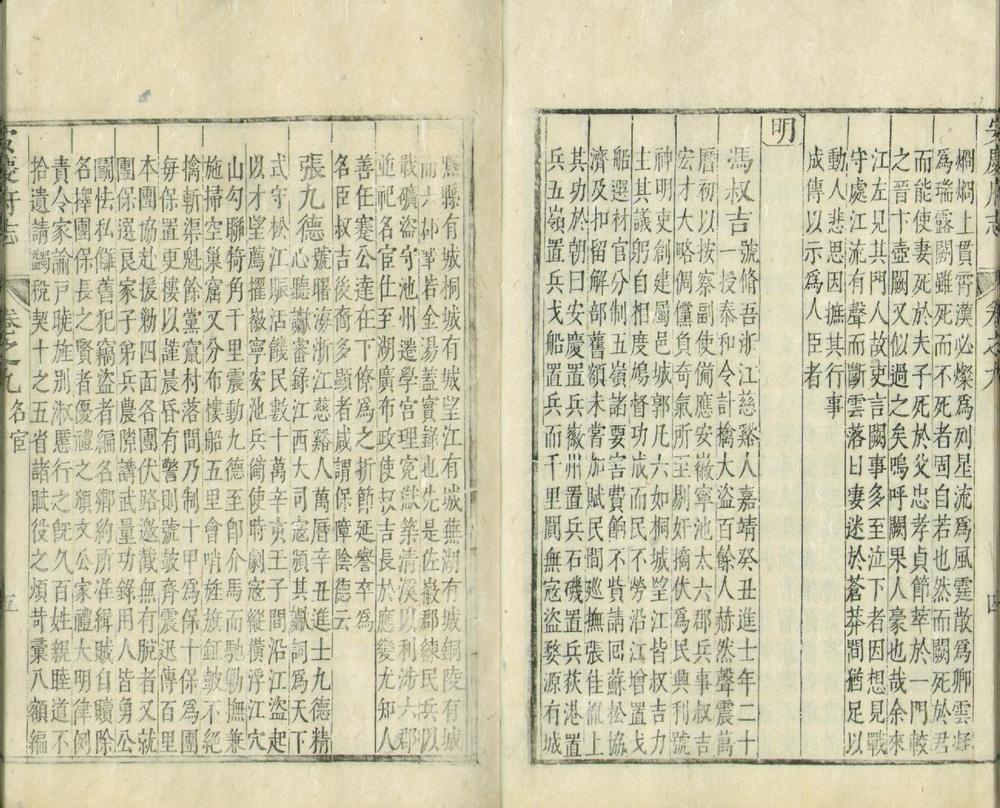 安慶府志
烱烱上貫霄漢必燦爲列星流爲風霆散爲卿雲凝
爲瑞露闕雖死而不死者固自若也然而闕死於君
而能使妻死於夫子死於父忠孝貞節萃於一門較
之晉卞壺闕又似過之矣嗚呼闕果人豪也哉余來
江左見其門人故吏言闕事多至泣下者因想見戰
守處江流有聲而斷雲落日妻迷於蒼莽間猶足以
動人悲思因摭其行事
成傳以示爲人臣者
明
馮叔吉號脩吾浙江慈谿人嘉靖癸丑進士年二十
一授泰和令計擒大盜百餘人赫然聲震萬
曆初以按察副使備應安徽寧池太六郡兵事叔吉
宏才大略倜儻負奇氣所至剔奸摘伏爲民興利號
神明吏創建屬邑城郭凡六如桐城望江皆叔吉力
主其議躬自相度鳩材督功成而民不勞沿江增置戈
船選材官分制五嶺諸要害費節不貲請囬蘇松協
濟及扣留解部舊額未嘗加賦民間巡撫張佳胤上
其功於朝曰安慶置兵徽州置兵石磯置兵荻港置
兵五嶺置兵戈船置兵而千里闃無寇盜婺源有城
黟縣有城桐城有城望江有城蕪湖有城銅陵有城
而六郡鞏若金湯蓋實錄也先是佐徽郡練民兵以
戢礦盜守池州遷學宫理寃獄築清溪以利涉六郡
並祀名宦仕至湖廣布政使叔吉長於應變尤知人
善任蹇公達在下僚爲之折節延譽卒爲
名臣叔吉後裔多顯者咸謂保障陰德云
張九德號曙海浙江慈谿人萬曆辛丑進士九德精
心聽讞審錄江西大司寇頒其讞詞爲天下
式守松江賑活饑民數十萬辛亥王子間沿江盜起
以才望薦擢徽寧安池兵備使時劇寇縱横浮江穴
山勾聯犄角千里震動九德至郎介馬而馳勦撫兼
施掃空巢窟又分布樓船五里會哨旌旗鉦鼓不絕
擒斬渠魁餘黨竄村落間乃制十甲爲保十保爲團
毎保置更樓以謹晨昏有警則號鼓齊震迅傳百里
本團協赴援勦四面各團伏路邀截無有脫者又就
團保選艮家子弟兵農隙講武量功錄用人皆勇公
鬭怯私讎舊犯竊盜者編名鄉約所准緝賊自贖除
名擇團保長之賢者優禮之頒文公家禮大明律例
責令家諭戸曉旌别淑慝行之旣久百姓親睦道不
拾遺請蠲稅契十之五省諸賦役之煩苛彙八額編
安慶府志
卷之九名宦
五